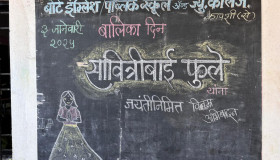 बार्टी इंग्लिश पब्लिक स्कूल अँड ज्यु. कॉलेज.
३ जानेवारी
२०२५
बालिका दिन
सावित्रीबाई फुले
यांना
जयंतीनिमित्त विनम्र
अभिवादन